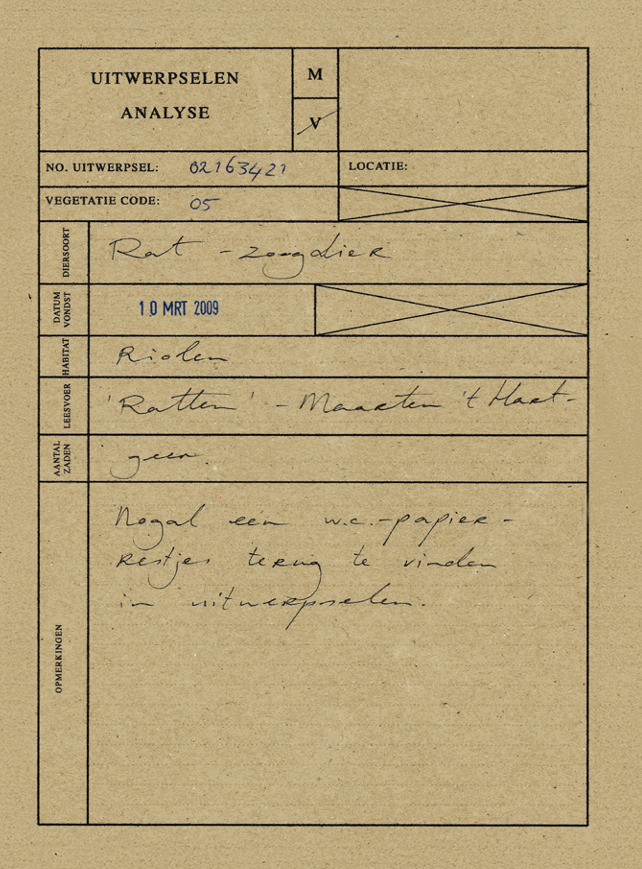 UITWERPSELEN
ANALYSE
M
V
NO. UITWERPSEL: 02163421
LOCATIE:
VEGETATIE CODE: 05
DIERSOORT
Rat - zoogdier
DATUM
VONDST
10 MRT 2009
HABITAT
Riolen
LEESVOER
'Ratten' - Maarten 't Hart-
AANTAL
ZADEN
geen
OPMERKINGEN
Nogal een w.c.-papier-
restjes terug te vinden
in uitwerpselen.